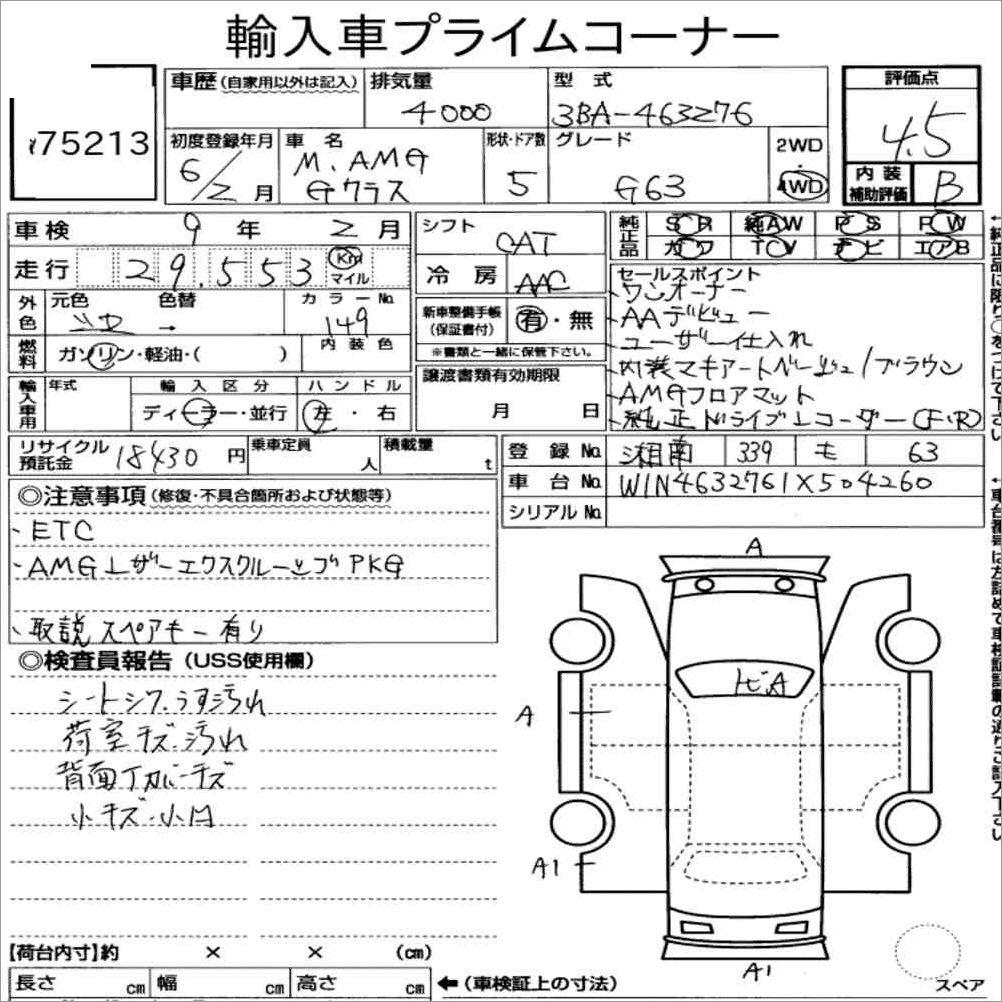 輸入車プライムコーナー
75213
車歴 (自家用以外は記入)
排気量
4000
型式
3BA-463276
評価点
4.5
内装補助評価
B
初度登録年月
6/2月
車名
M.AMG
Gクラス
形状・ドア数
5
グレード
G63
2WD
・
4WD
車検 9年 2月
走行 29.553 Km
マイル
シフト
CAT
冷房
AAC
純正品
SR 純AW PS PW
カワ TV ナビ エアB
外色
元色
色替
→
カラーNo.
149
内装色
燃料
ガソリン・軽油・( )
新車整備手帳
(保証書付)
有・無
※書類と一緒に保管下さい。
輸入車用
年式
輸入区分
ディーラー・並行
ハンドル
左・右
譲渡書類有効期限
月 日
セールスポイント
ワンオーナー
AAデビュー
ユーザー仕入れ
内装マキアートベージュ/ブラウン
AMGフロアマット
純正ドライブレコーダー(F,R)
リサイクル預託金 18430円
乗車定員
人
積載量
t
登録No. 湘南 339 モ 63
車台No. W1N4632761X504260
シリアルNo.
◎注意事項 (修復・不具合箇所および状態等)
、ETC
、AMGレザーエクスクルーシブPKG
、取説 スペアキー有り
◎検査員報告 (USS使用欄)
シートシワ.うす汚れ
荷室キズ.汚れ
背面Tカバーキズ
小キズ.小凹
A
ヒA
A
A1
A1
スペア
【荷台内寸】約 × × (cm)
長さ cm 幅 cm 高さ cm
←(車検証上の寸法)